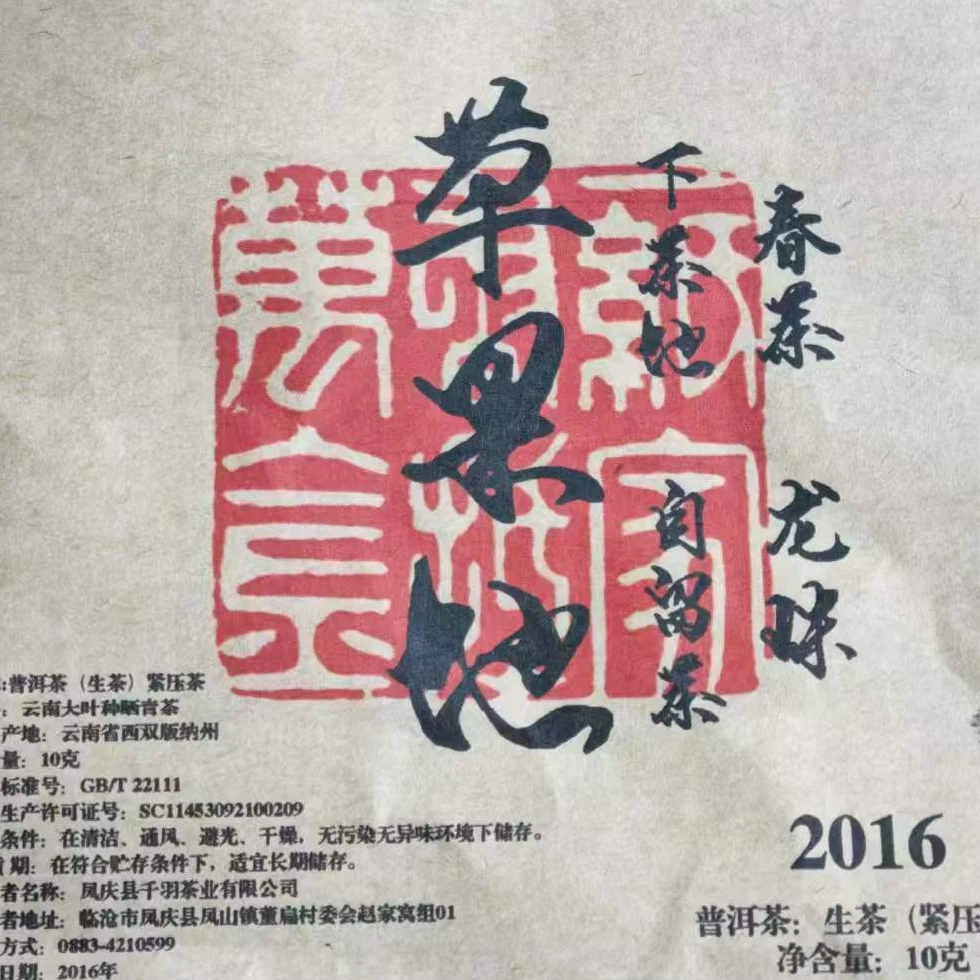 春茶 龙珠
下茶地 自留茶
草果地
:普洱茶（生茶）紧压茶
：云南大叶种晒青茶
产地：云南省西双版纳州
量：10克
标准号：GB/T 22111
生产许可证号：SC11453092100209
条件：在清洁、通风、避光、干燥，无污染无异味环境下储存。
期：在符合贮存条件下，适宜长期储存。
者名称：凤庆县千羽茶业有限公司
者地址：临沧市凤庆县凤山镇董扁村委会赵家窝组01
方式：0883-4210599
日期：2016年
2016
普洱茶：生茶（紧压
净含量：10克